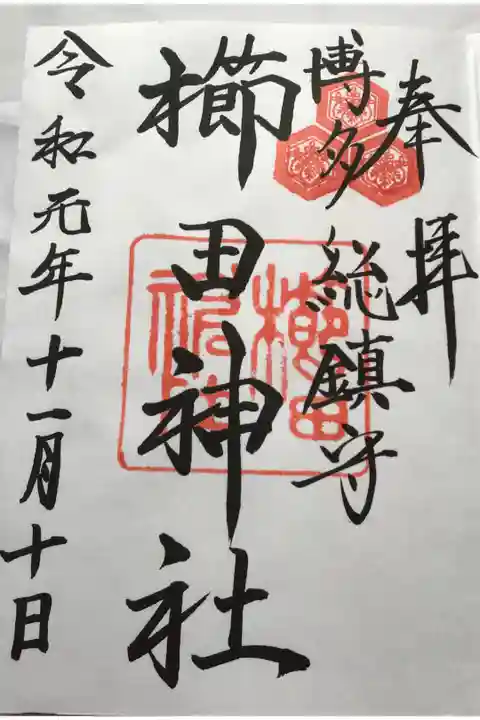 奉拝
博多総鎮守
櫛田神社
令和元年十一月十日
櫛田神社